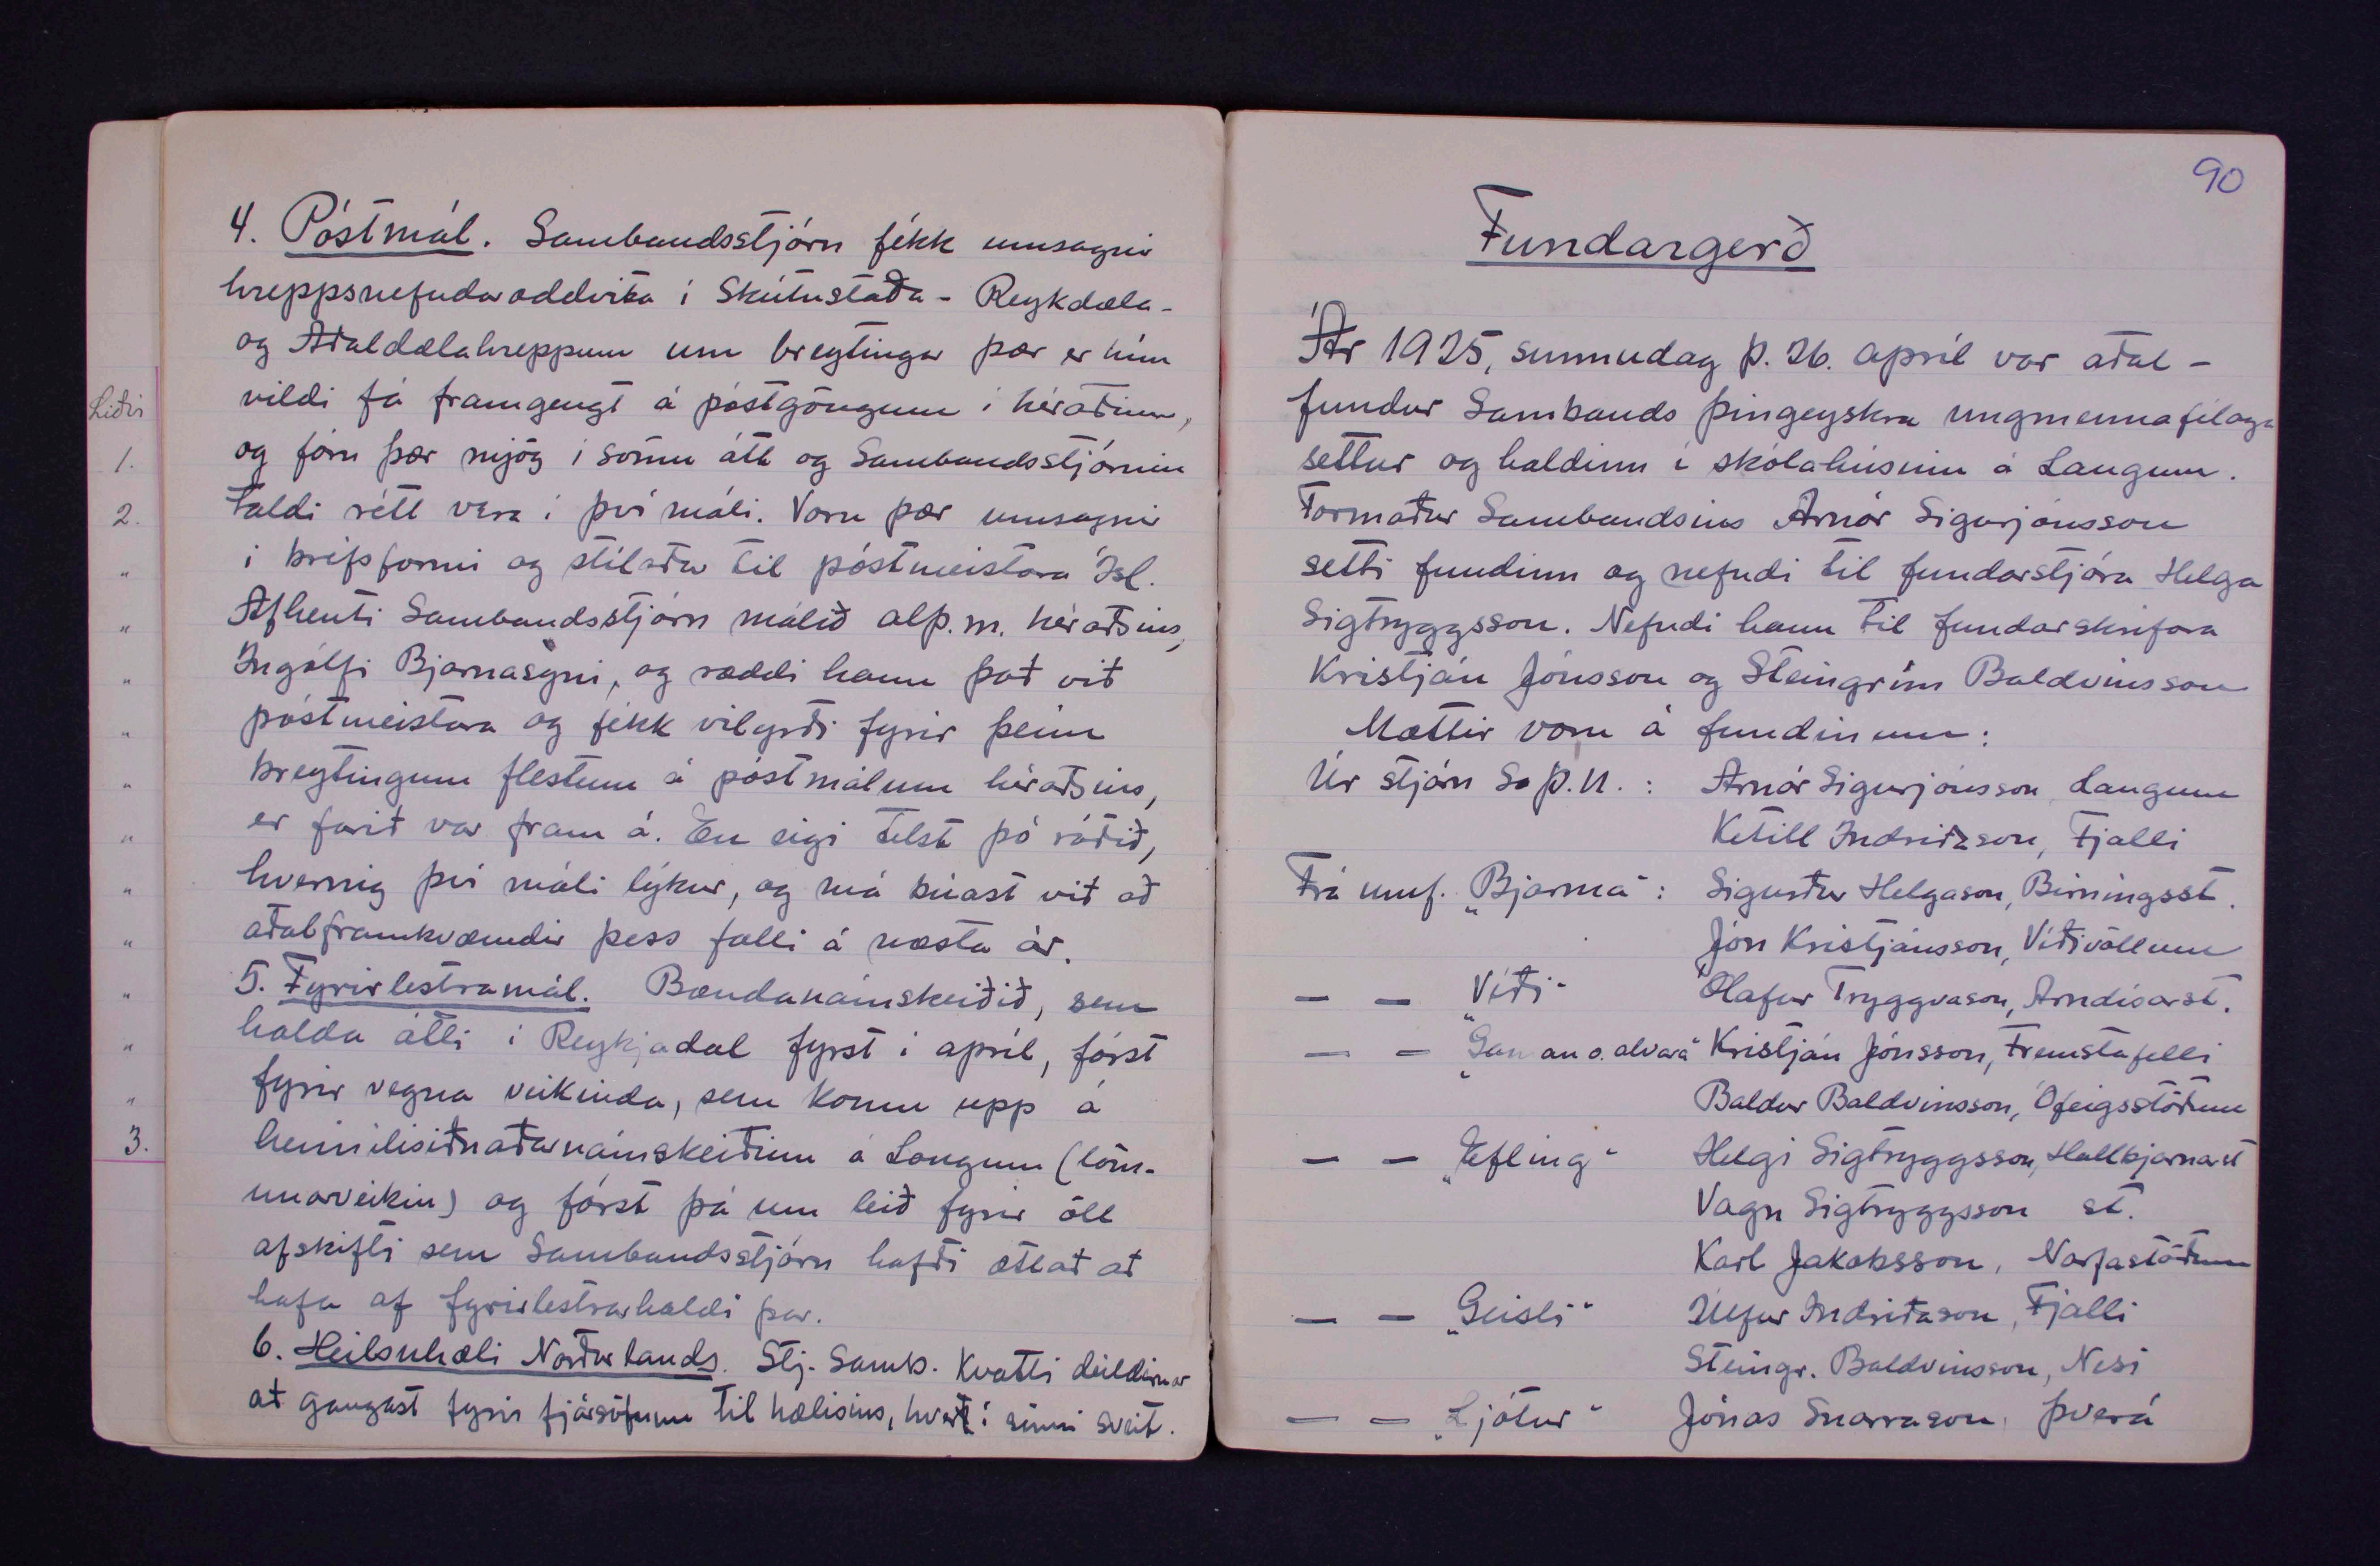 Liðir
1.
2.
"
"
"
"
"
"
"
"
"
"
"
3.
4. Póstmál. Sambandsstjórn fékk umsagnir
hreppsnefndaroddvita í Skútustaða- Reykdæla-
og Aðaldælahreppum um breytingar þær er hún
vildi fá framgengt á póstgöngum í héraðinu,
og fóru þær mjög í sömu átt og Sambandsstjórnin
taldi rétt vera í því máli. Voru þær umsagnir
í bréfsformi og stílaðar til póstmeistara Ísl.
Afhenti Sambandsstjórn málið alþ.m. héraðsins,
Ingólfi Bjarnasyni, og ræddi hann það við
póstmeistara og fékk vilyrði fyrir þeim
breytingum flestum á póstmálum héraðsins,
er farið var fram á. En eigi telst þó ráðið,
hvernig því máli lýkur, og má búast við að
aðalframkvæmdir þess falli á næsta ár.
5. Fyrirlestramál. Bændanámskeiðið, sem
halda átti í Reykjadal fyrst í apríl, fórst
fyrir vegna veikinda, sem komu upp á
heimilisiðnaðarnámskeiðinu á Laugum (löm-
unarveikin) og fórst þá um leið fyrir öll
afskifti sem Sambandsstjórn hafði ætlað að
hafa af fyrirlestrarhaldi þar.
6. Heilsuhæli Norðurlands. Stj. Samb. kvatti deildirnar
að gangast fyrir fjársöfnun til hælisins, hvert í sinni sveit.
90
Fundargerð
Ár 1925, sunnudag þ. 26. apríl var aðal-
fundur Sambands þingeyskra ungmennafélaga
settur og haldinn í skólahúsinu á Laugum.
Formaður Sambandsins Arnór Sigurjónsson
setti fundinn og nefndi til fundarstjóra Helga
Sigtryggsson. Nefndi hann til fundarskrifara
Kristján Jónsson og Steingrím Baldvinsson
Mættir voru á fundinum:
Úr stjórn S.þ.U.: Arnór Sigurjónsson Laugum
Ketill Indriðason, Fjalli
Frá umf. „Bjarma“: Sigurður Helgason, Birningsst.
Jón Kristjánsson, Víðivöllum
— — „Víði“ Ólafur Tryggvason, Arndísarst.
— — „Gaman o. alvara“ Kristján Jónsson, Fremstafelli
Baldur Baldvinsson, Ófeigsstöðum
— — „Efling“ Helgi Sigtryggsson, Hallbjarnarst
Vagn Sigtryggsson st.
Karl Jakobsson, Narfastöðum
— — „Geisli“ Úlfur Indriðason, Fjalli
Steingr. Baldvinsson, Nesi
— — „Ljótur“ Jónas Snorrason, Þverá